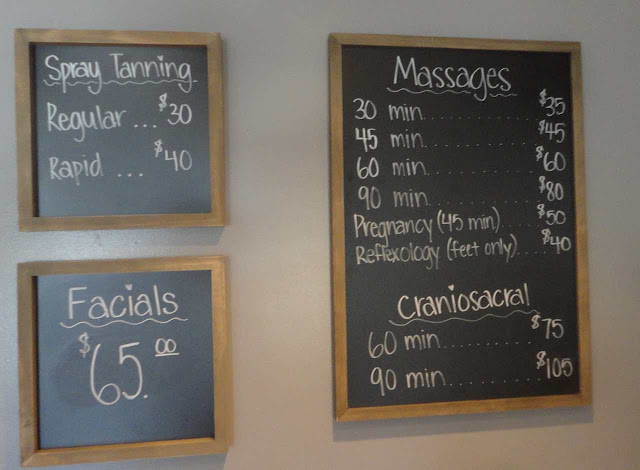 Spray Tanning
Regular ... $30
Rapid ... $40
Facials
$65.00
Massages
30 min......... $35
45 min......... $45
60 min......... $60
90 min......... $80
Pregnancy (45 min)..... $50
Reflexology (feet only).... $40
Craniosacral
60 min......... $75
90 min......... $105